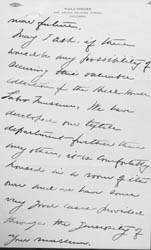 HULL-HOUSE
CHICAGO
near future.
May I ask if there
would be any possibility of
securing this valuable
collection for the Hull-House
Labor Museum. We have
developed our textile
department further than
any other, it is comfortably
housed in a room of its
own and we have some
very good cases provided
through the generosity of
your museum.